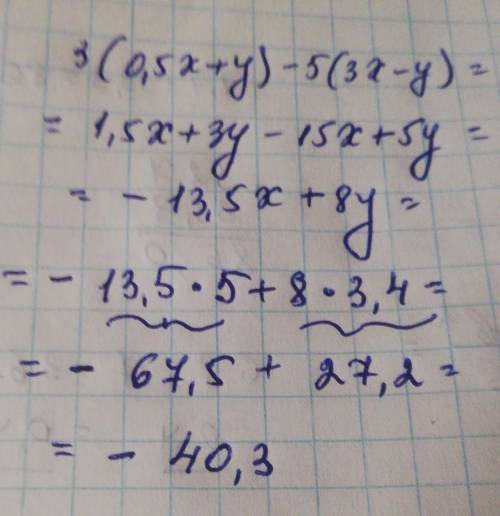 3(0,5x+y)-5(3x-y)=
=1,5x+3y-15x+5y=
=-13,5x+8y=
=-13,5·5+8·3,4=
=-67,5+27,2=
=-40,3